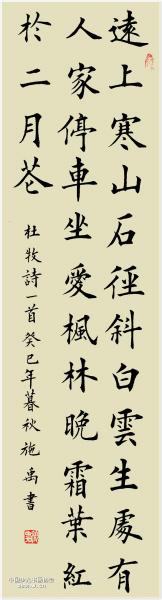 遠上寒山石徑斜白雲生處有
人家停車坐愛楓林晚霜葉紅
於二月花
杜牧詩一首癸巳年暮秋施禹書